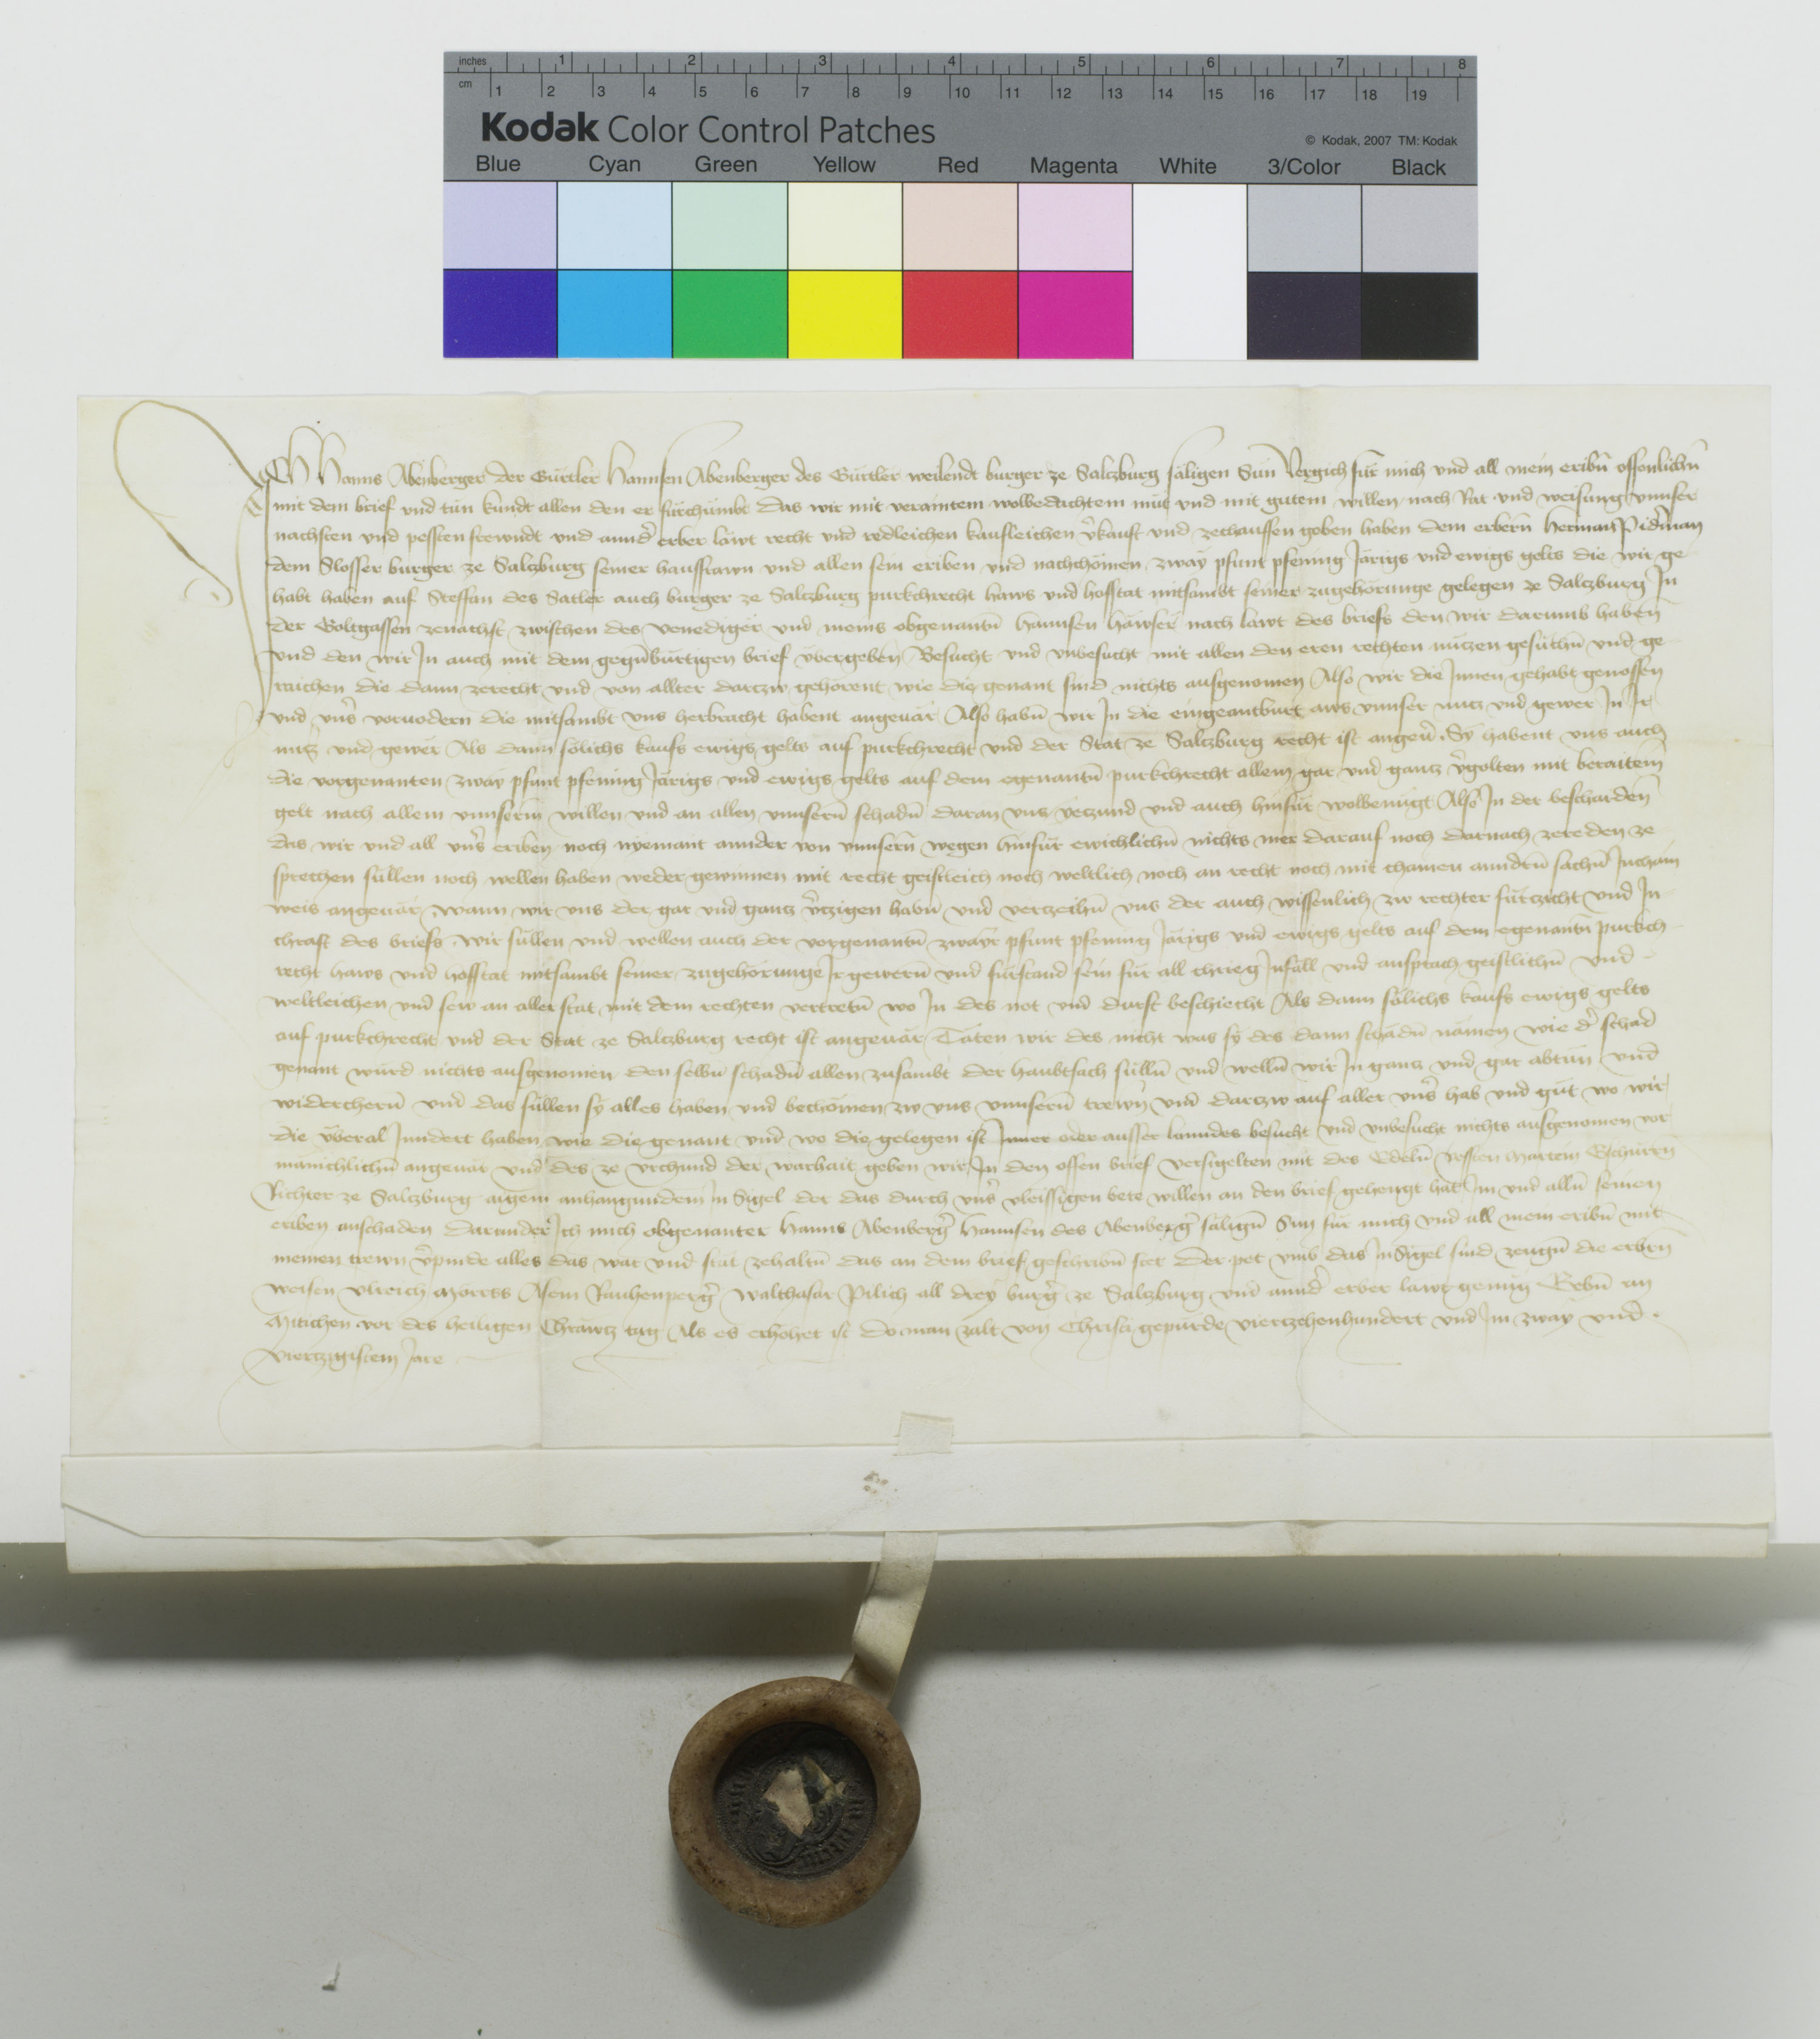 inches 1 2 3 4 5 6 7 8
cm 1 2 3 4 5 6 7 8 9 10 11 12 13 14 15 16 17 18 19
Kodak Color Control Patches
© Kodak, 2007 TM: Kodak
Blue Cyan Green Yellow Red Magenta White 3/Color Black
Ich Hanns Abenberger der Gürtler Hannsen Abenberger des Gürtler weilendt burger ze Salczburg säligen Sun Vergich für mich und all mein eribn̄ offenlichn̄
mit dem brief und tůn kundt allen den er fürchümbt Das wir mit veraintem wolbedachtem můt vnd mit gutem willen nach Rat vnd weisung vnnser
nachsten vnd pessten frewndt vnd annd̄ erber läwt recht vnd redleichen kaufleichen v̄kauft vnd zechauffen geben haben dem erbern̄ Herman Pidman
dem Slosser burger ze Salczburg seiner hausfrawn vnd allen sein eriben vnd nachchömen zwaÿ pfunt pfening Järigs vnd ewigs gelts die wir ge
habt haben auf Steffan des Satler auch burger ze Salczburg purkchrecht haws vnd hofstat mitsambt seiner zugehörunge gelegen ze Salczburg Jn
der Goltgassen zenachst zwischen des Venediger vnd meins obgenantn̄ Hannsen häwser nach lawt des briefs den wir darumb haben
vnd den wir Jn auch mit dem gegn̄bürtigen brief v̈bergeben Besucht vnd vnbesucht mit allen den eren rechten nüczen gesüchn̄ vnd ge
raichen die dann zerecht vnd von allter darczw gehörent wie die genant sind nichts ausgenomen Also wir die Jnnen gehabt genossen
vnd vns̄ vorvodern die mitsambt vns herbracht habent angeuär Also habn̄ wir Jn die eingeantburt aws vnnser nucz vnd gewer Jn Jr
nucz vnd gewer Als dann sölichs kaufs ewigs gelts auf purkchrecht vnd der Stat ze Salczburg recht ist angeū. Sÿ habent vns auch
die vorgenanten zwaÿ pfunt pfening Järigs vnd ewigs gelts auf dem egenantn̄ purkchrecht allem gar vnd gancz v̄golten mit beraitem
gelt nach allem vnnserm willen vnd an allen vnnsern̄ schadn̄ daran vns yeczund vnd auch hinfür wolbenügt Also Jn der beschaiden
das wir vnd all vns̄ eriben noch nÿemant annder von vnnsern̄ wegen hinfür ewichlichn̄ nichts mer darauf noch darnach zereden ze
sprechen süllen noch wellen haben weder gewinnen mit recht geistleich noch weltlich noch an recht noch mit chainen anndern̄ sachn̄ Jn chain
weis angeuär wann wir vns der gar vnd gancz v̄czigen habn̄ vnd verzeihn̄ vns der auch wissenlich zw rechter fürczicht vnd Jn
chraft des briefs. Wir süllen vnd wellen auch der vorgenantn̄ zwaÿr pfunt pfening Järigs vnd ewigs gelts auf dem egenantn̄ purkch
recht haws vnd hofstat mitsambt seiner zugehörunge Jr gewern̄ vnd fürstand sein für all chrieg Jnfäll vnd ansprach geistlichn̄ vnd
weltleichen vnd sew an aller stat mit dem rechten vertretn̄ wo Jn des not vnd durft beschiecht Als dann sölichs kaufs ewigs gelts
auf purkchrecht vnd der Stat ze Salczburg recht ist angeuär Täten wir des nicht was sÿ des dann schadn̄ nämen wie d̄ schad
genant würd nichts ausgenomen den selbn̄ schadn̄ allen zusambt der haubtsach sülln̄ vnd welln̄ wir Jn gancz vnd gar abtün vnd
widerchern̄ vnd das süllen sÿ alles haben vnd bechömen zw vns vnnsern̄ trewn̄ vnd darczw auf aller vns̄ hab vnd güt wo wir
die v̈beral Jnndert haben wie die genant vnd wo die gelegen ist Jnner oder ausser lanndes besucht vnd vnbesucht nichts ausgenomen vor
mänichlichn̄ angeuär vnd des ze vrchund der warhait geben wir Jn den offen brief versigelten mit des Edeln̄ vessten Martein
Richter ze Salczburg aigem anhangundem Jn Sigel der das durch vns̄ vleissigen bete willen an den brief gehengt hat Jm vnd alln̄ seinen
eriben anschaden Darunder Jch mich obgenanter Hanns Abenberḡ Hannsen des Abenberḡ sälign̄ Sun für mich vnd all mein eribn̄ mit
meinen trewn v̄pinde alles das war vnd stät zehaltn̄ das an dem brief geschribn̄ stet Der pet vmb das Jn Sigel sind zeugn̄ die erbrn̄
weisen Vlreich Asem Rauhenperḡ Walthasar Pilich all dreÿ burḡ ze Salczburg vnd annd̄ erber läwt genüg Gebn̄ an
Mitichen vor des heiligen Chräwcz tag Als es erhöhet ist Do man zalt von Christi gepürde vierczehenhundert vnd Jm zwaÿ vnd
vierczigistem Jare